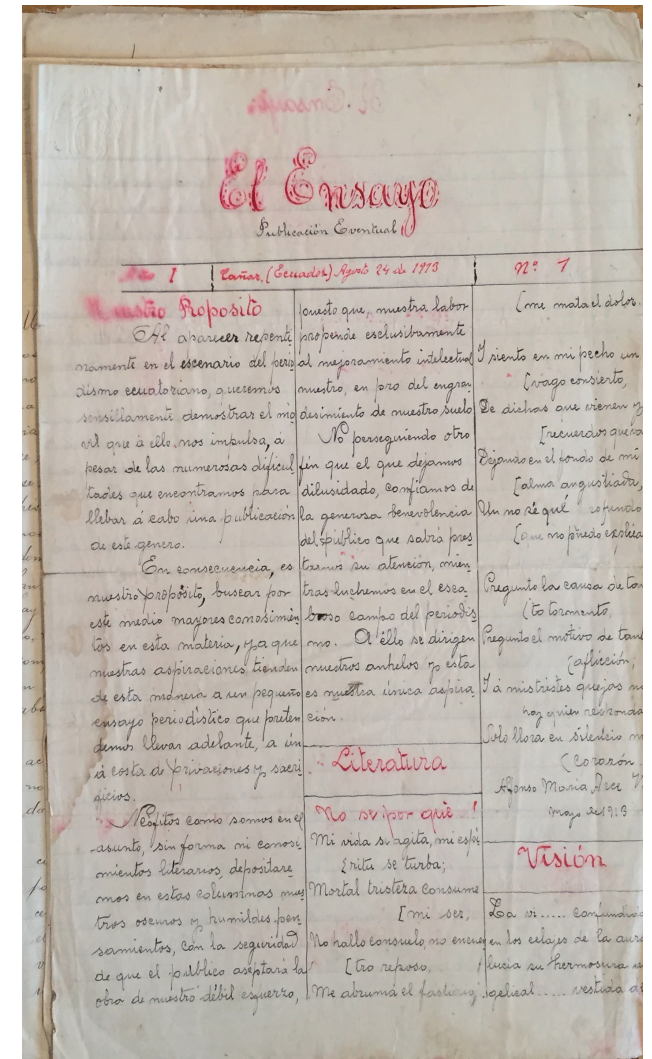 El Ensayo
Publicación Eventual
1
Cañar, (Ecuador) Agosto 24 de 1913
Nº 1
Nuestro Proposito
Al aparecer repenti
namente en el escenario del perio
dismo ecuatoriano, queremos
sensillamente demostrar el mó
vil que à ello nos impulsa, á
pesar de las numerosas dificul
tades que encontramos para
llebar á cabo una publicación
de este genero.
En consecuencia, es
nuestro propósito, buscar por
este medio mayores conosimien
tos en esta materia, ya que
nuestras aspiraciones tienden
de esta manera a un pequeño
ensayo periodístico que preten
demos llevar adelante, a ún
à costa de privaciones y sacri
ficios.
Neófitos como somos en el
asunto, sin forma ni conosi
mientos literarios, depositare
mos en estas columnas nues
tros oscuros y humildes pen
samientos, con la seguridad
de que el público aseptará la
obra de nuestro débil esfuerzo,
puesto que, nuestra labor
propende esclusibamente
al mejoramiento intelectual
nuestro, en pro del engran
desimiento de nuestro suelo
No perseguiendo otro
fin que el que dejamos
dilusidado, confiamos de
la generosa benevolencia
del público que sabrá pres
tarnos su atención, mien
tras luchemos en el esca
broso campo del periodis
mo. A ello se dirigen
nuestros anhelos y esta
es nuestra única aspira
ción.
Literatura
No se por què !
Mi vida se agita, mi espí
[ritu se turba;
Mortal tristeza consume
[mi ser,
No hallo consuelo, no encuen
[tro reposo,
Me abruma el fastidio,
[me mata el dolor.
I siento en mi pecho un
[vago consierto,
De dichas que vienen y
[recuerdos que va
Dejando en el fondo de mi
[alma angustiada,
Un no sé qué
[que no puedo explica
Pregunto la causa de tan
(to tormento,
Pregunto el motivo de tan
(aflicción;
I á mis tristes quejas no
hay quien responda
Solo llora en silencio m
(corazón.
Alfonso María Arce V
Mayo de 1913
Visión
La vi..... confundida
en los celajes de la auro
lucia su hermosura
gelical ..... vestida de